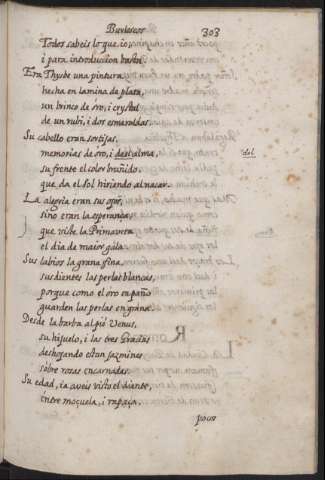 Burlescos
303
Todos sabeis lo que io se,
i para introducion basta.
Era Thysbe una pintura
hecha en lamina de plata,
un brinco de oro, i crystal
de un rubi, i dos esmeraldas.
Su cabello eran sortijas,
memorias de oro, i del alma,
del
su frente el color bruñido
que da el Sol hiriendo al nacar.
La alegria eran sus ojos,
sino eran la esperança,
que viste la Primavera
el dia de maior gala.
Sus labios la grana fina,
sus dientes las perlas blancas,
porque como el oro en paño
guarden las perlas en grana.
Desde la barba al pie Venus,
su hijuelo, i las tres Gracias
deshojando estan jazmines
sobre rosas encarnadas.
Su edad, ia aveis visto el diente,
entre moçuela, i rapaça,
pocos